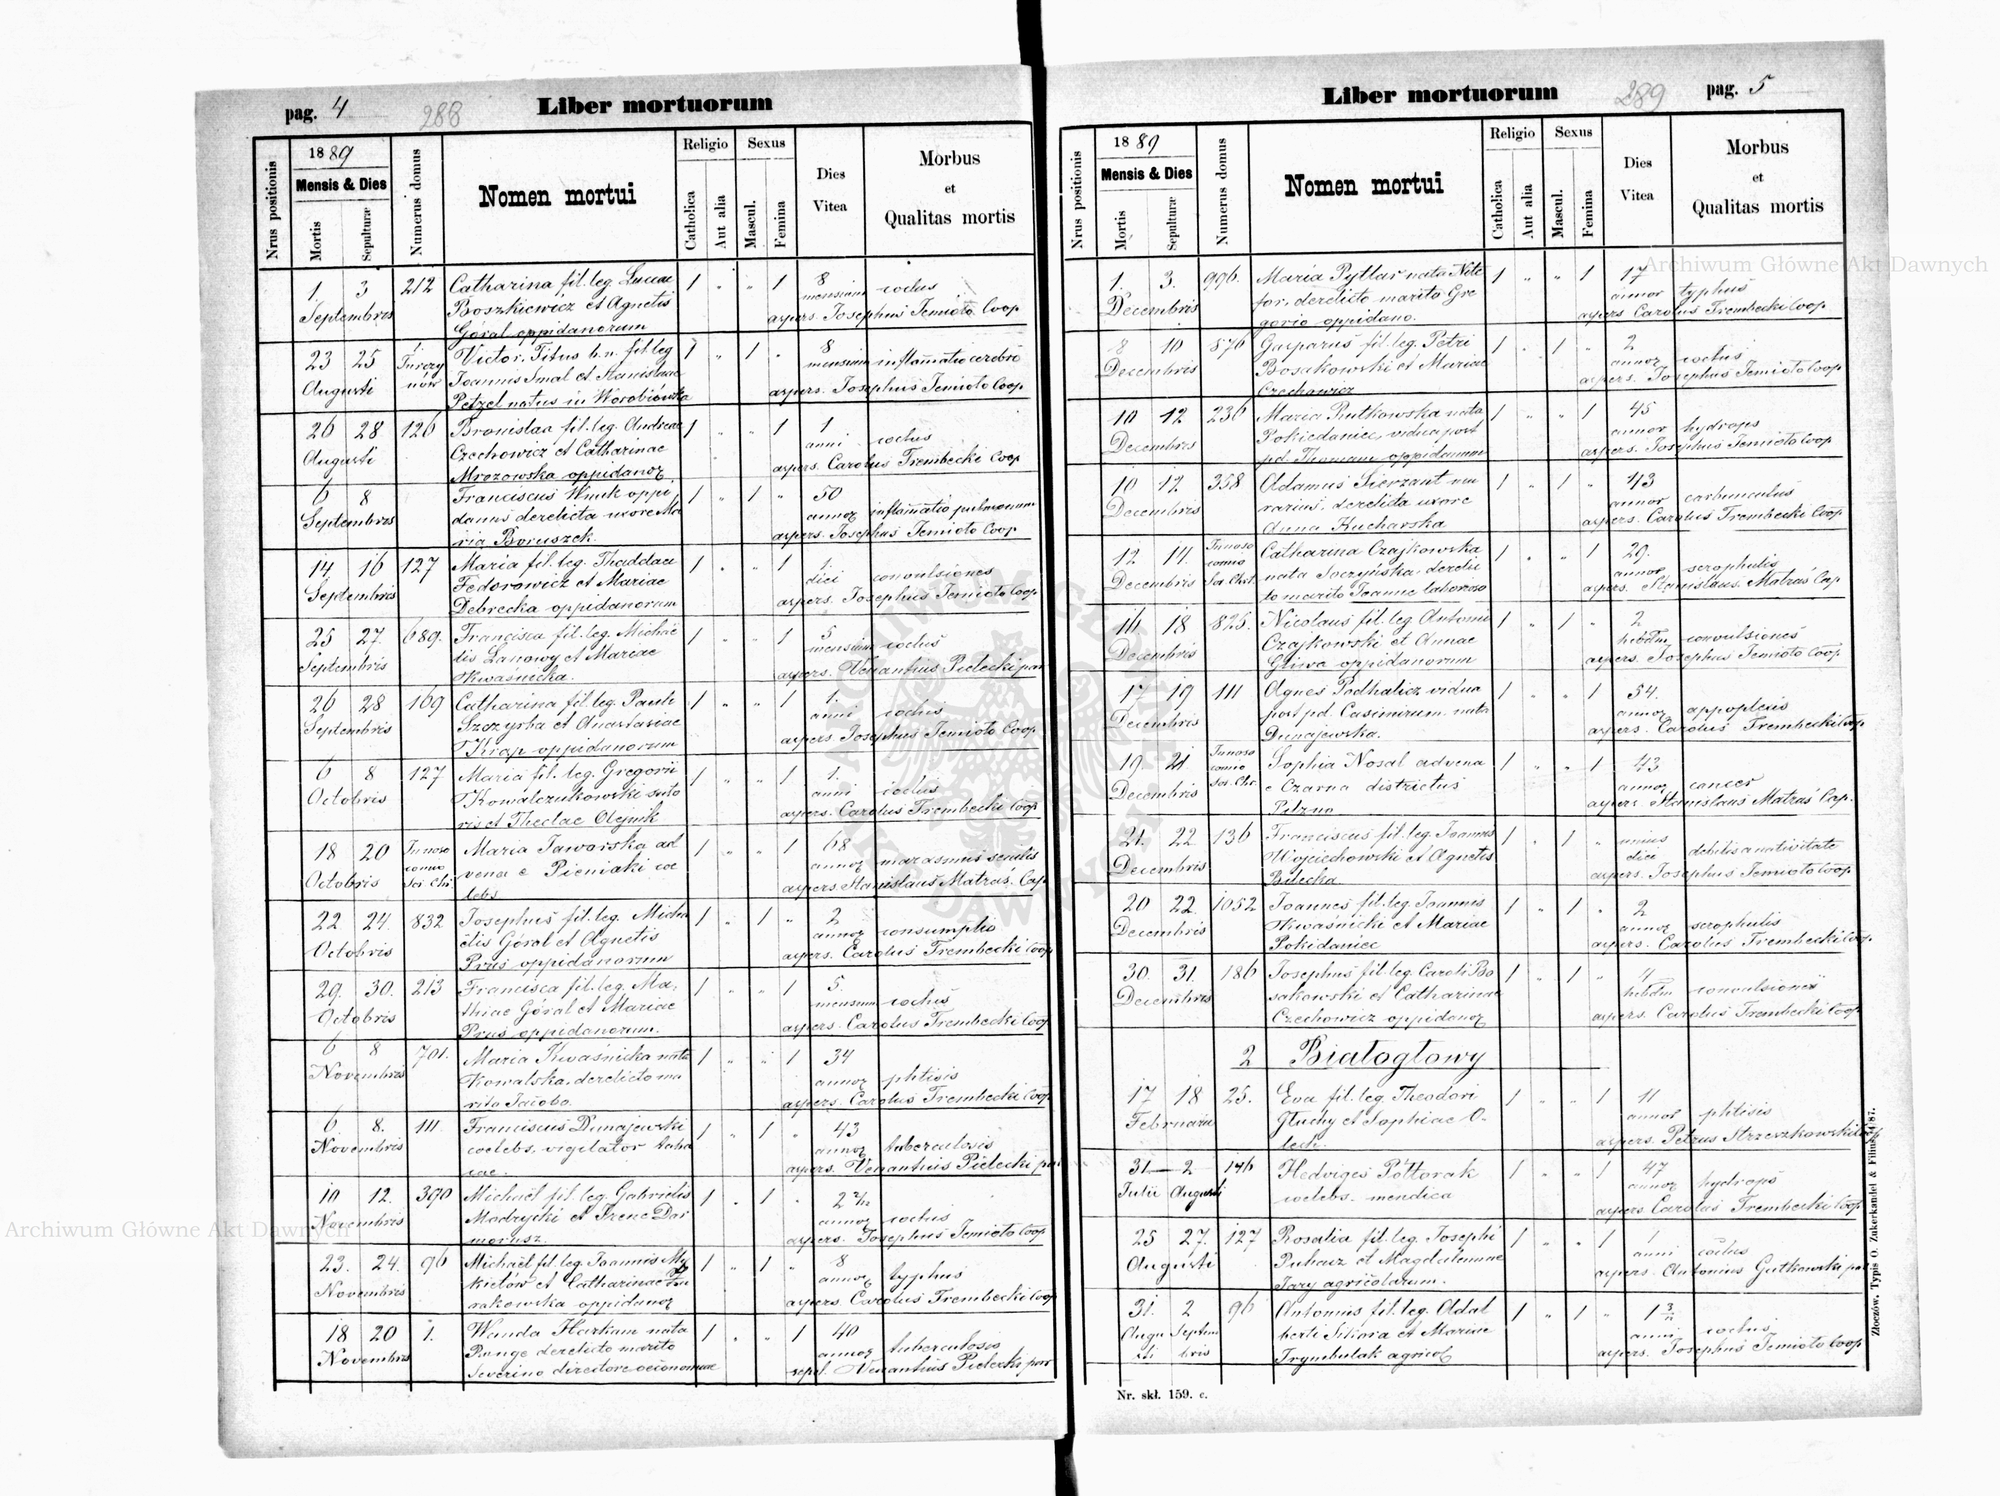 pag. 4
288
Liber mortuorum
Nrus positionis
1889
Mensis & Dies
Mortis
Sepulturæ
Numerus domus
Nomen mortui
Religio
Catholica
Aut alia
Sexus
Mascul.
Femina
Dies
Vitea
Morbus
et
Qualitas mortis
1 3 212 Catharina fil. leg. Luccae 1 " " 1 8
Septembris Boszkiewicz et Agnetis mensium coctus
Góral oppidanorum aspers. Josephus Temioto Coop
23 25 Victor, Titus b. n. fil. leg 1 " 1 " 8
Augusti Joannis Smal et Stanislaae mensium inflamatio cerebri
Petzel natus in Worobiówka aspers. Josephus Temioto Coop
26 28 126 Bronislaa fil. leg. Andreae 1 " " 1 1
Augusti Czechowicz et Catharinae anni coctus
Mrozowska oppidanor aspers. Carolus Trembecki Coop
6 8 Franciscus Wnuk oppi 1 " 1 " 50
Septembris danus derelicta uxore Ma annor inflamatio pulmonum
ria Boruszek. aspers. Josephus Temioto Coop
14 16 127 Maria fil. leg. Thaddaei 1 " " 1 1.
Septembris Fedorowicz et Mariae diei convulsiones
Debrecka oppidanorum aspers. Josephus Temioto Coop
25 27. 689. Francisca fil. leg. Michaë 1 " " 1 5
Septembris lis Lanowy et Mariae mensium coctus
Kwaśnicka. aspers. Venantius Pielecki par
26 28 169 Catharina fil. leg. Pauli 1 " " 1 1.
Septembris Szczyrba et Anastasiae anni coctus
Krap oppidanorum aspers. Josephus Temioto Coop
6 8 127 Maria fil. leg. Gregorii 1 " " 1 1.
Octobris Kowalczukowski suto anni coctus
ris et Theclae Olejnik aspers. Carolus Trembecki Coop
18 20 Maria Jaworska ad 1 " " 1 68
Octobris vena e Pieniaki cae annor marasmus senilis
lebs aspers. Stanislaus Matraś. Cap
22 24. 832 Josephus fil. leg. Micha 1 " 1 " 2
Octobris ëlis Góral et Agnetis annor consumptio
Prus oppidanorum aspers. Carolus Trembecki Coop
29. 30. 213 Francisca fil. leg. Ma- 1 " " 1 5.
Octobris thiae Góral et Mariae mensium coctus
Prus oppidanorum. aspers. Carolus Trembecki Coop
6 8 701. Maria Kwaśnicka nata 1 " " 1 34
Novembris Kowalska, derelicto ma annor phtisis
rito Jacobo. aspers. Carolus Trembecki Coop
6. 8. 111. Franciscus Dunajewski 1 " 1 " 43
Novembris coelebs, vigilator taba annor tuberculosis
cae. aspers. Venantius Pielecki par
10 12. 390 Michaël fil. leg. Gabrielis 1 " 1 " 2
Novembris Madrycki et Irene Dar annor coctus
morusz. aspers. Josephus Temioto Coop
23. 24. 96 Michaël fil. leg. Joannis My 1 " 1 " 8
Novembris kietów et Catharinae annor typhus
rakowska oppidanor aspers. Carolus Trembecki Coop
18 20 1. Wanda Harkam nata 1 " " 1 40
Novembris Runge derelicto marito annor tuberculosis
Severino directore oeconomiae sepel. Venantius Pielecki par
Liber mortuorum
289
pag. 5
Nrus positionis
1889
Mensis & Dies
Mortis
Sepulturæ
Numerus domus
Nomen mortui
Religio
Catholica
Aut alia
Sexus
Mascul.
Femina
Dies
Vitea
Morbus
et
Qualitas mortis
1. 3. 996. Maria Pytlar nata Nite 1 " " 1 17
Decembris for, derelicto marito Gre annor typhus
gorio oppidano. aspers Carolus Trembecki Coop
8 10 876 Gasparus fil. leg. Petri 1 " 1 " 2
Decembris Bosakowski et Mariae annor coctus
Czechowicz aspers. Josephus Temioto Coop
10 12 236 Maria Rutkowska nata 1 " " 1 45
Decembris Pokidaniec, vidua post annor hydrops
pd. Thomam oppidanum aspers. Josephus Temioto Coop
10 12 358 Adamus Sierzant mu 1 " 1 " 43
Decembris rarius, derelicta uxore annor carbunculus
Anna Kucharska aspers. Carolus Trembecki Coop
12 14. Catharina Czajkowska 1 " " 1 29.
Decembris nata Soczyńska, dereli annor scrophulis
to marito Joanne laborioso aspers. Stanislaus. Matraś Cap
16 18 825. Nicolaus fil. leg. Antonii 1 " 1 " 2
Decembris Czajkowski et Annae hebdm convulsiones
Gliwa oppidanorum aspers. Josephus Temioto Coop
17 19 111 Agnes Podhalicz vidua 1 " " 1 54.
Decembris post pd. Casimirum. nata annor appoplexis
Dunajewska. aspers. Carolus Trembecki Coop
19. 21 Sophia Nosal advena 1 " " 1 43
Decembris e Czarna districtus annor cancer
Pilzno aspers. Stanislaus Matraś Cap.
21. 22 136 Franciscus fil. leg. Joannis 1 " 1 " unius
Decembris Wojciechowski et Agnetis diei debilis a nativitate
Bilecka aspers. Josephus Temioto Coop
20 22. 1052 Joannes fil. leg. Joannis 1 " 1 " 2
Decembris Kwaśnicki et Mariae annor scrophulis
Pokidaniec aspers. Carolus Trembecki Coop
30. 31. 186 Josephus fil. leg. Caroli Bo 1 " 1 " 4
Decembris sakowski et Catharinae hebdm convulsiones
Czechowicz oppidanor aspers. Carolus Trembecki Coop
2 Białogłowy
17 18 25. Eva fil. leg. Theodori 1 " " 1 11
Februarii Głuchy et Sophiae O- annor phtisis
lech. aspers. Petrus Strzeszkowski
31 — 2 146 Hedviges Półtorak 1 " " 1 47
Julii Augusti coelebs. mendica annor hydrops
aspers. Carolus Trembecki Coop
25 27. 127 Rosalia fil. leg. Josephi 1 " " 1 1
Augusti Puhacz et Magdalenae anni coctus
Jary agricolarum. aspers. Antonius Gutkowski par
31. 2 96 Antonius fil. leg. Adal 1 " 1 " 1
Augu Septem berti Sikora et Mariae anni coctus.
sti bris Trymbulak agricol aspers. Josephus Temioto Coop
Nr. skł. 159. c.
Złoczów, Typis O. Zukerkandel & Filius 24/87.
Archiwum Główne Akt Dawnych
Archiwum Główne Akt Dawnych